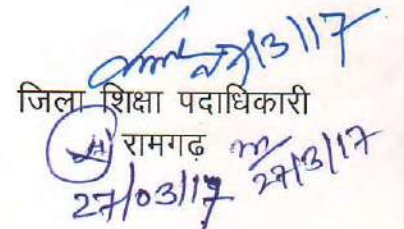 27/3/17
जिला शिक्षा पदाधिकारी
रामगढ़
27/3/17
27/03/17